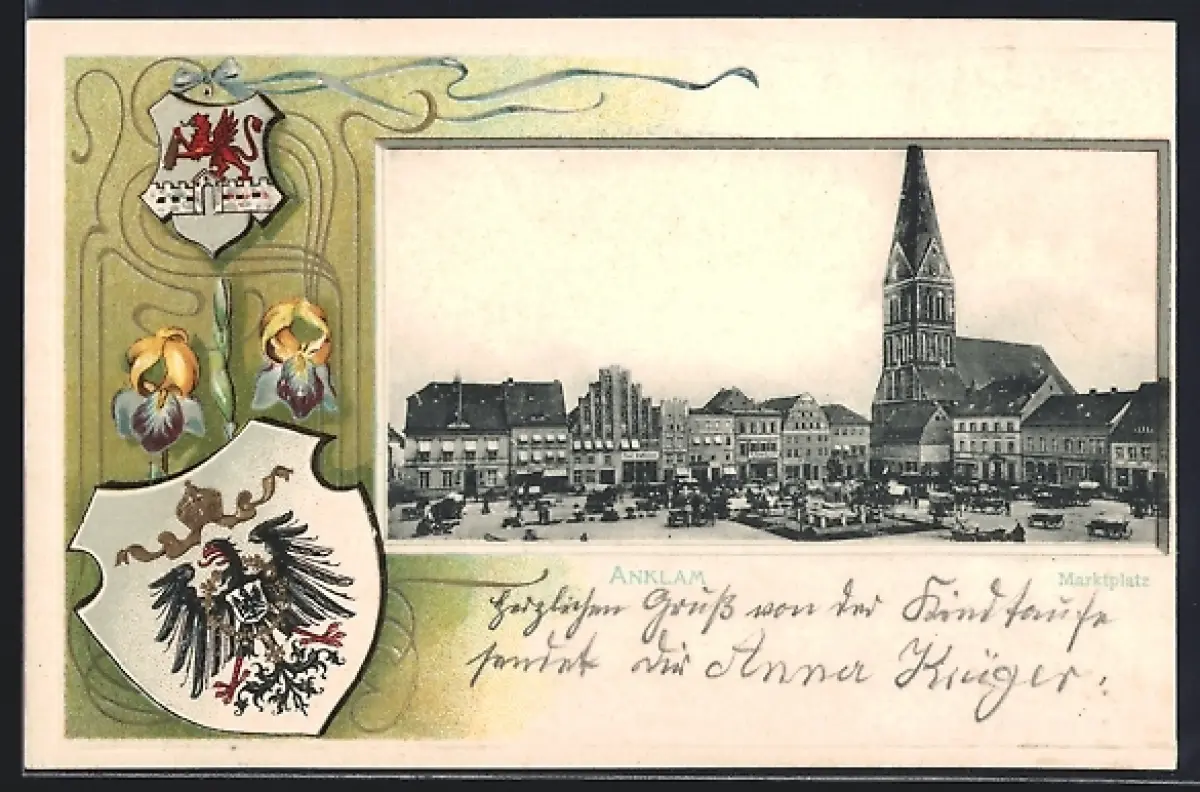 ANKLAM
Marktplatz
Herzlichen Gruß von der Kindtaufe
sendet dir Anna Krüger.